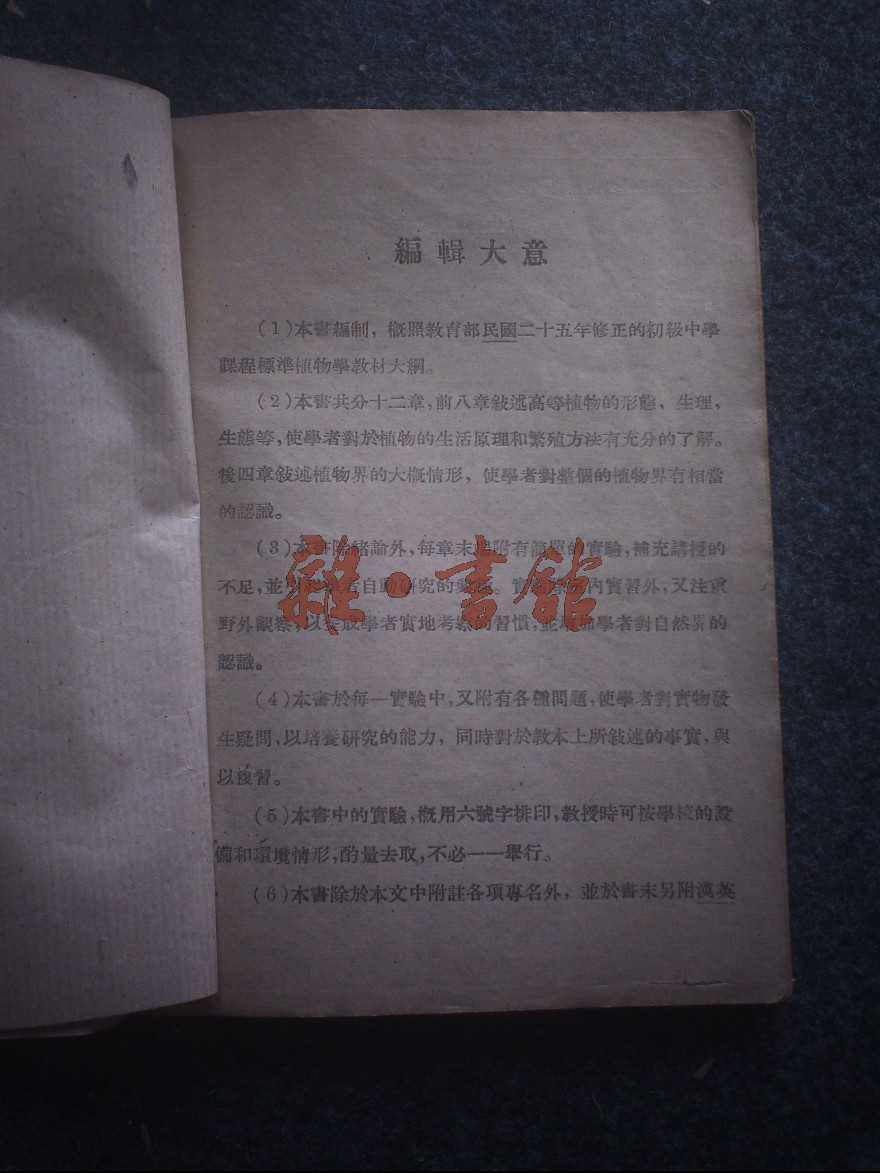 編輯大意
(1)本書編制，概照教育部民國二十五年修正的初級中學
課程標準植物學教材大綱。
(2)本書共分十二章，前八章敍述高等植物的形態，生理，
生態等，使學者對於植物的生活原理和繁殖方法有充分的了解。
後四章敍述植物界的大概情形，使學者對整個的植物界有相當
的認識。
(3)本書除緒論外，每章末附有的實驗，補充講授的
不足，並者自動研究的。實內實習外，又注重
野外觀察，以養成學者實地考察的習慣，並增加學者對自然界的
認識。
雜·書館
(4)本書於每一實驗中，又附有各種問題，使學者對實物發
生疑問，以培養研究的能力，同時對於教本上所敍述的事實，與
以複習。
(5)本書中的實驗，概用六號字排印，教授時可按學校的設
備和環境情形，酌量去取，不必一一舉行。
(6)本書除於本文中附註各項專名外，並於書末另附漢英